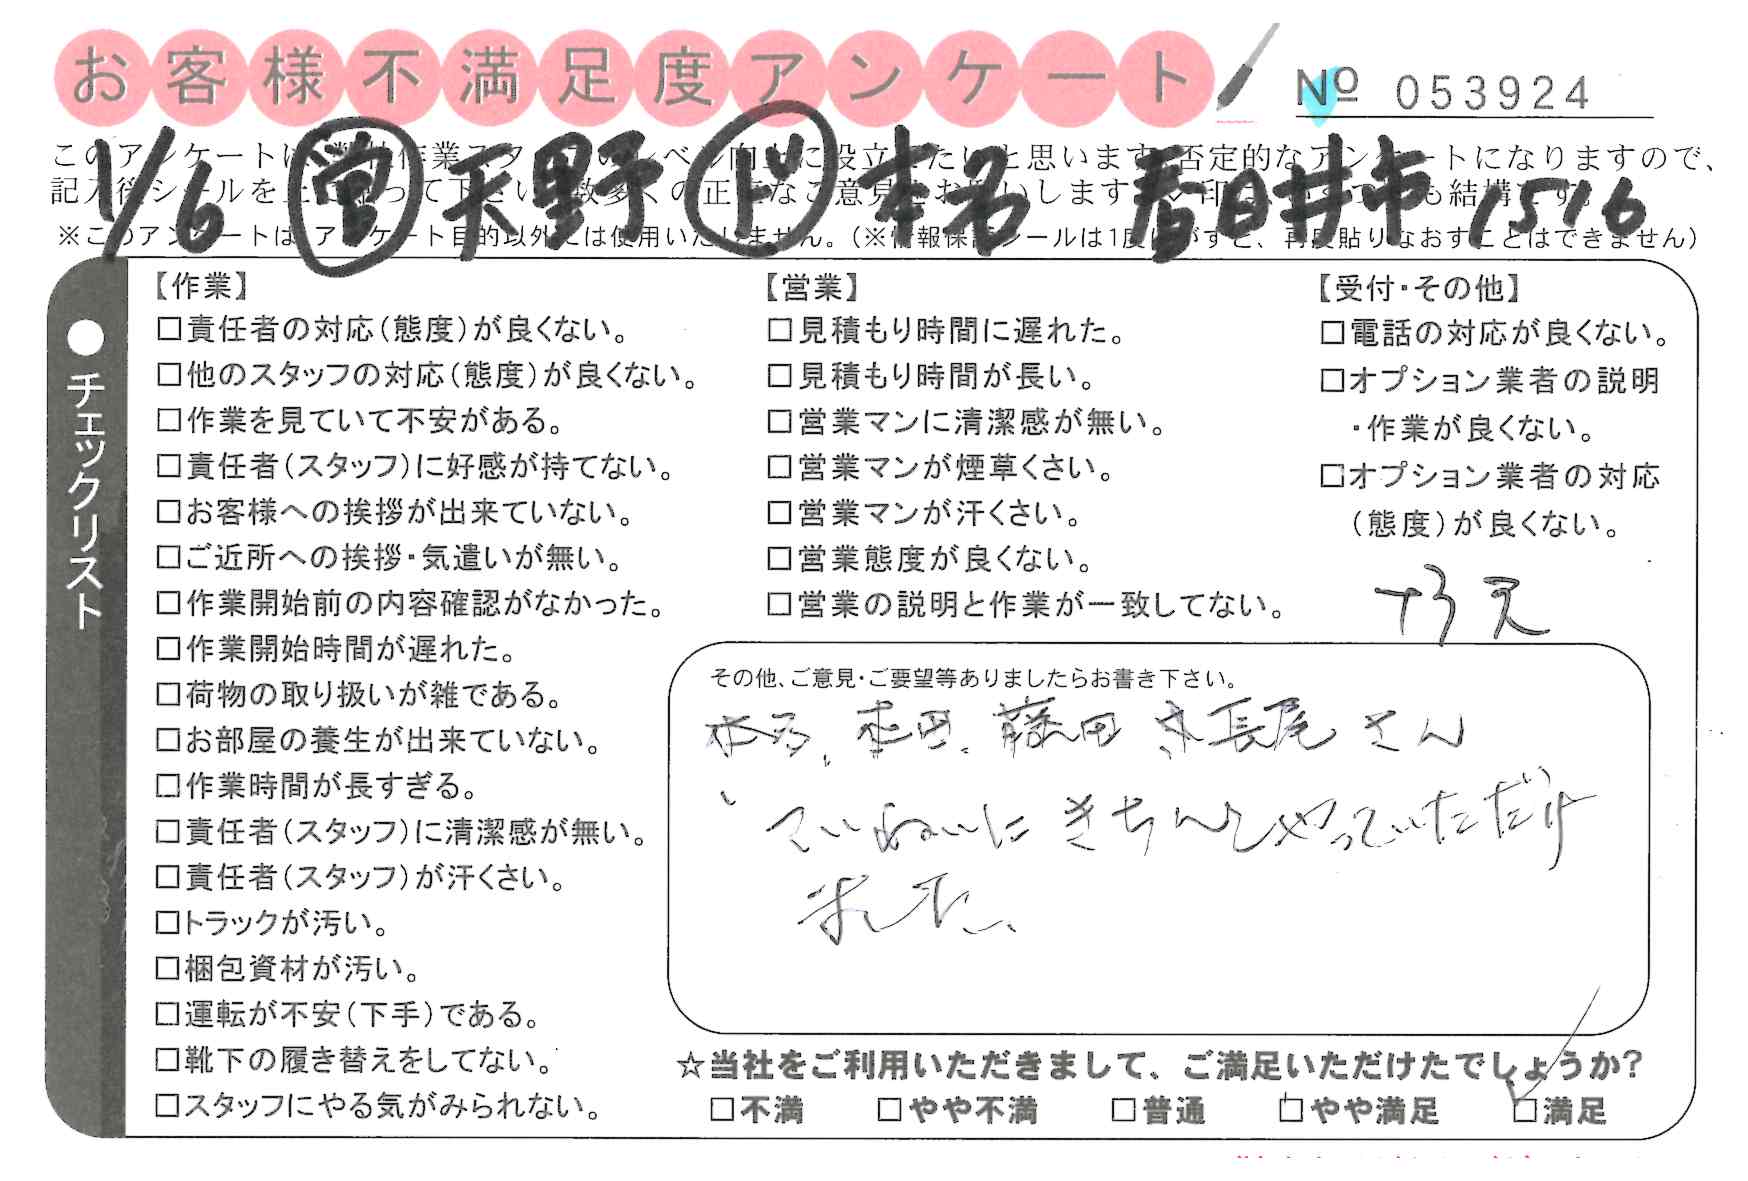 お客様不満足度アンケート
№ 053924
1/6 営 天野 ド 本名 春日井市 1516
このアンケートは 作業スタッフのレベル向上に役立てたいと思います。否定的なアンケートになりますので、
記入後シールを上に貼って下さい。数多くの正直なご意見をお願いします。 印は つでも結構です。
※このアンケートは、アンケート目的以外には使用いたしません。(※情報保護シールは1度はがすと、再度貼りなおすことはできません)
●チェックリスト
【作業】
□責任者の対応(態度)が良くない。
□他のスタッフの対応(態度)が良くない。
□作業を見ていて不安がある。
□責任者(スタッフ)に好感が持てない。
□お客様への挨拶が出来ていない。
□ご近所への挨拶・気遣いが無い。
□作業開始前の内容確認がなかった。
□作業開始時間が遅れた。
□荷物の取り扱いが雑である。
□お部屋の養生が出来ていない。
□作業時間が長すぎる。
□責任者(スタッフ)に清潔感が無い。
□責任者(スタッフ)が汗くさい。
□トラックが汚い。
□梱包資材が汚い。
□運転が不安(下手)である。
□靴下の履き替えをしてない。
□スタッフにやる気がみられない。
【営業】
□見積もり時間に遅れた。
□見積もり時間が長い。
□営業マンに清潔感が無い。
□営業マンが煙草くさい。
□営業マンが汗くさい。
□営業態度が良くない。
□営業の説明と作業が一致してない。
【受付・その他】
□電話の対応が良くない。
□オプション業者の説明
・作業が良くない。
□オプション業者の対応
(態度)が良くない。
その他、ご意見・ご要望等ありましたらお書き下さい。
本名、本田、藤田 長尾 さん
ていねいに きちんとやっていただけ
ました。
☆当社をご利用いただきまして、ご満足いただけたでしょうか?
□不満 □やや不満 □普通 □やや満足 ☑満足